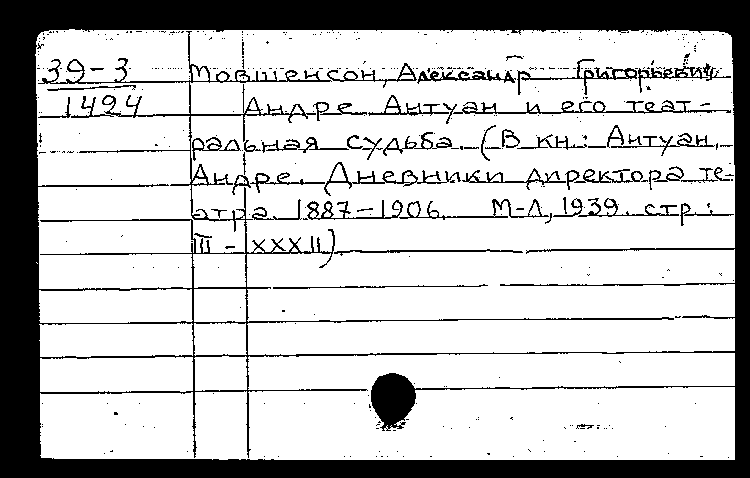 39-3 Мовшенсон, Александр Григорьевич
1424 Андре Антуан и его теат-
ральная судьба. (В кн.: Антуан,
Андре. Дневники директора те-
атра. 1887-1906. М-Л, 1939. стр.:
III - XXXII).